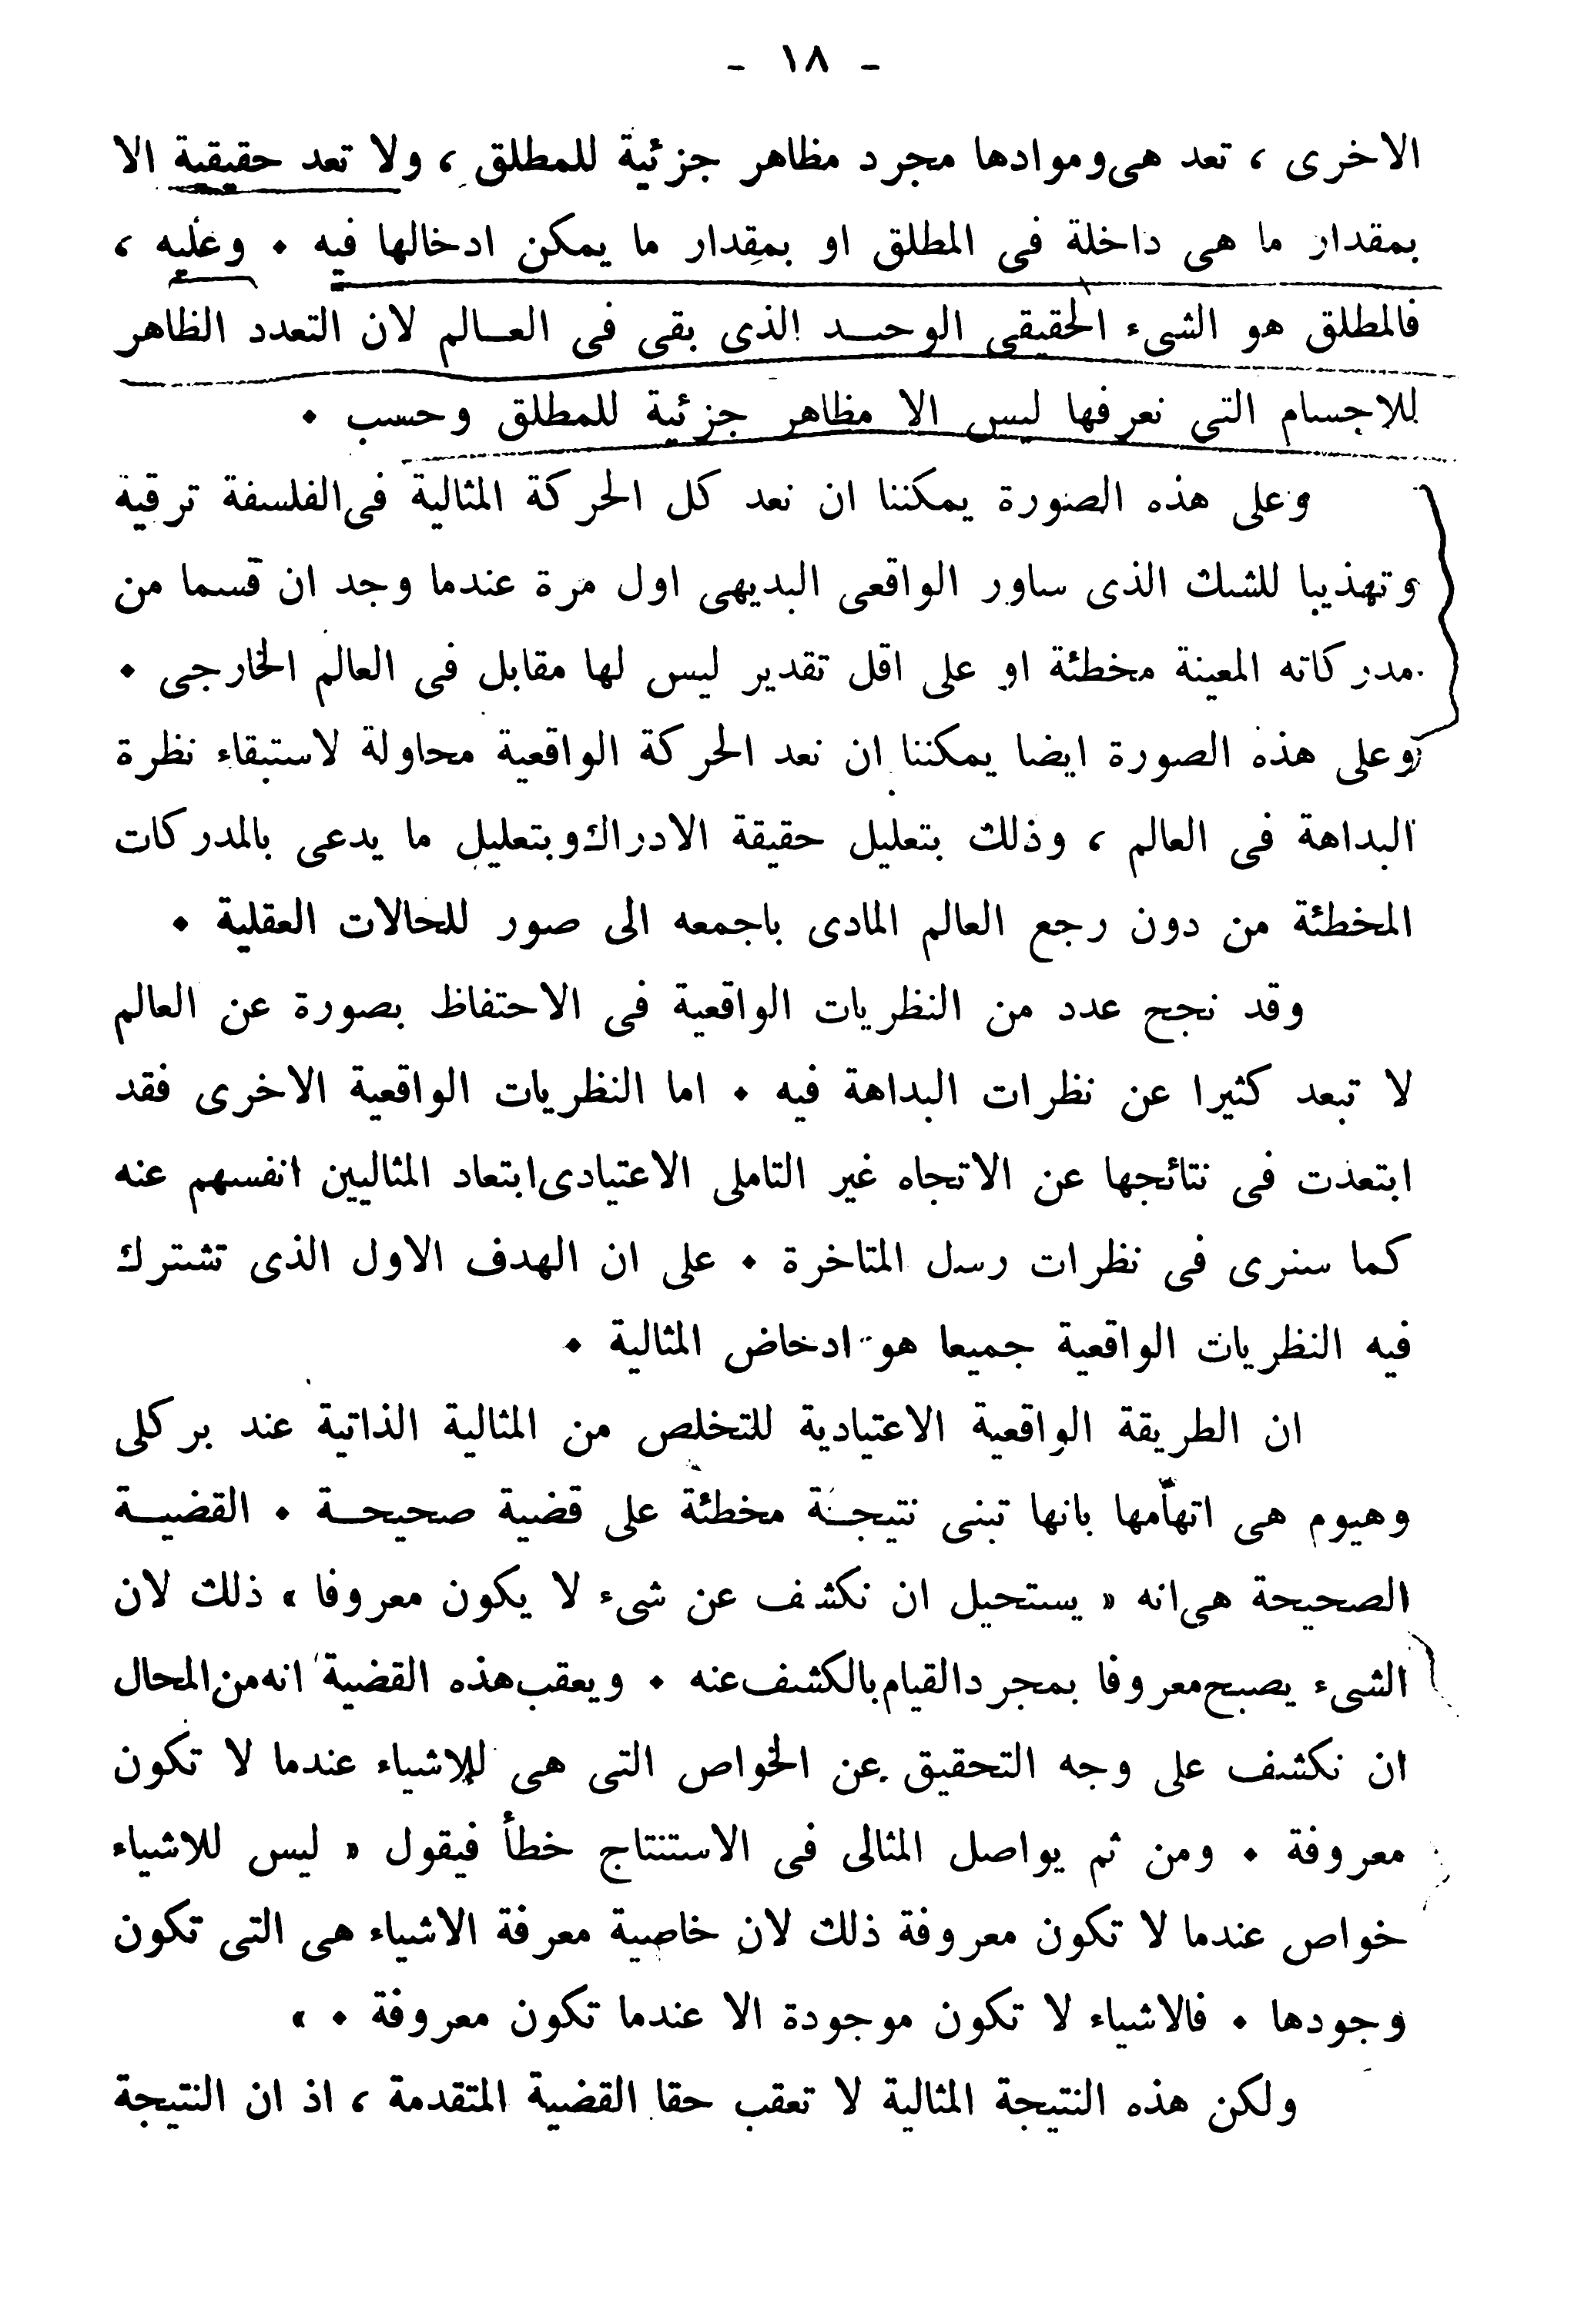 - ١٨ -
الاخرى ، تعد هى وموادها مجرد مظاهر جزئية للمطلق ، ولا تعد حقيقية الا
بمقدار ما هى داخلة فى المطلق او بمقدار ما يمكن ادخالها فيه ٠ وعليه ،
فالمطلق هو الشىء الحقيقى الوحيد الذى بقى فى العالم لان التعدد الظاهر
للاجسام التى نعرفها ليس الا مظاهر جزئية للمطلق وحسب ٠
وعلى هذه الصورة يمكننا ان نعد كل الحركة المثالية فى الفلسفة ترقية
وتهذيبا للشك الذى ساور الواقعى البديهى اول مرة عندما وجد ان قسما من
مدركاته المعينة مخطئة او على اقل تقدير ليس لها مقابل فى العالم الخارجى ٠
وعلى هذه الصورة ايضا يمكننا ان نعد الحركة الواقعية محاولة لاستبقاء نظرة
البداهة فى العالم ، وذلك بتعليل حقيقة الادراك وبتعليل ما يدعى بالمدركات
المخطئة من دون رجع العالم المادى باجمعه الى صور للحالات العقلية ٠
وقد نجح عدد من النظريات الواقعية فى الاحتفاظ بصورة عن العالم
لا تبعد كثيرا عن نظرات البداهة فيه ٠ اما النظريات الواقعية الاخرى فقد
ابتعدت فى نتائجها عن الاتجاه غير التاملى الاعتيادى ابتعاد المثاليين انفسهم عنه
كما سنرى فى نظرات رسل المتاخرة ٠ على ان الهدف الاول الذى تشترك
فيه النظريات الواقعية جميعا هو ادحاض المثالية ٠
ان الطريقة الواقعية الاعتيادية للتخلص من المثالية الذاتية عند بركلى
وهيوم هى اتهامها بانها تبنى نتيجة مخطئة على قضية صحيحة ٠ القضية
الصحيحة هى انه « يستحيل ان نكشف عن شىء لا يكون معروفا » ذلك لان
الشىء يصبح معروفا بمجرد القيام بالكشف عنه ٠ ويعقب هذه القضية انه من المحال
ان نكشف على وجه التحقيق عن الخواص التى هى للاشياء عندما لا تكون
معروفة ٠ ومن ثم يواصل المثالى فى الاستنتاج خطأ فيقول « ليس للاشياء
خواص عندما لا تكون معروفة ذلك لان خاصية معرفة الاشياء هى التى تكون
وجودها ٠ فالاشياء لا تكون موجودة الا عندما تكون معروفة ٠ »
ولكن هذه النتيجة المثالية لا تعقب حقا القضية المتقدمة ، اذ ان النتيجة